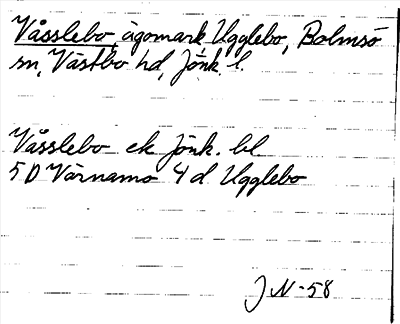 Våsslebo ägomark, Ugglebo, Bolmsö
sn, Västbo hd, Jönk. l.
Våsslebo ek Jönk. bl
5 D Värnamo 4 d Ugglebo
J N-58